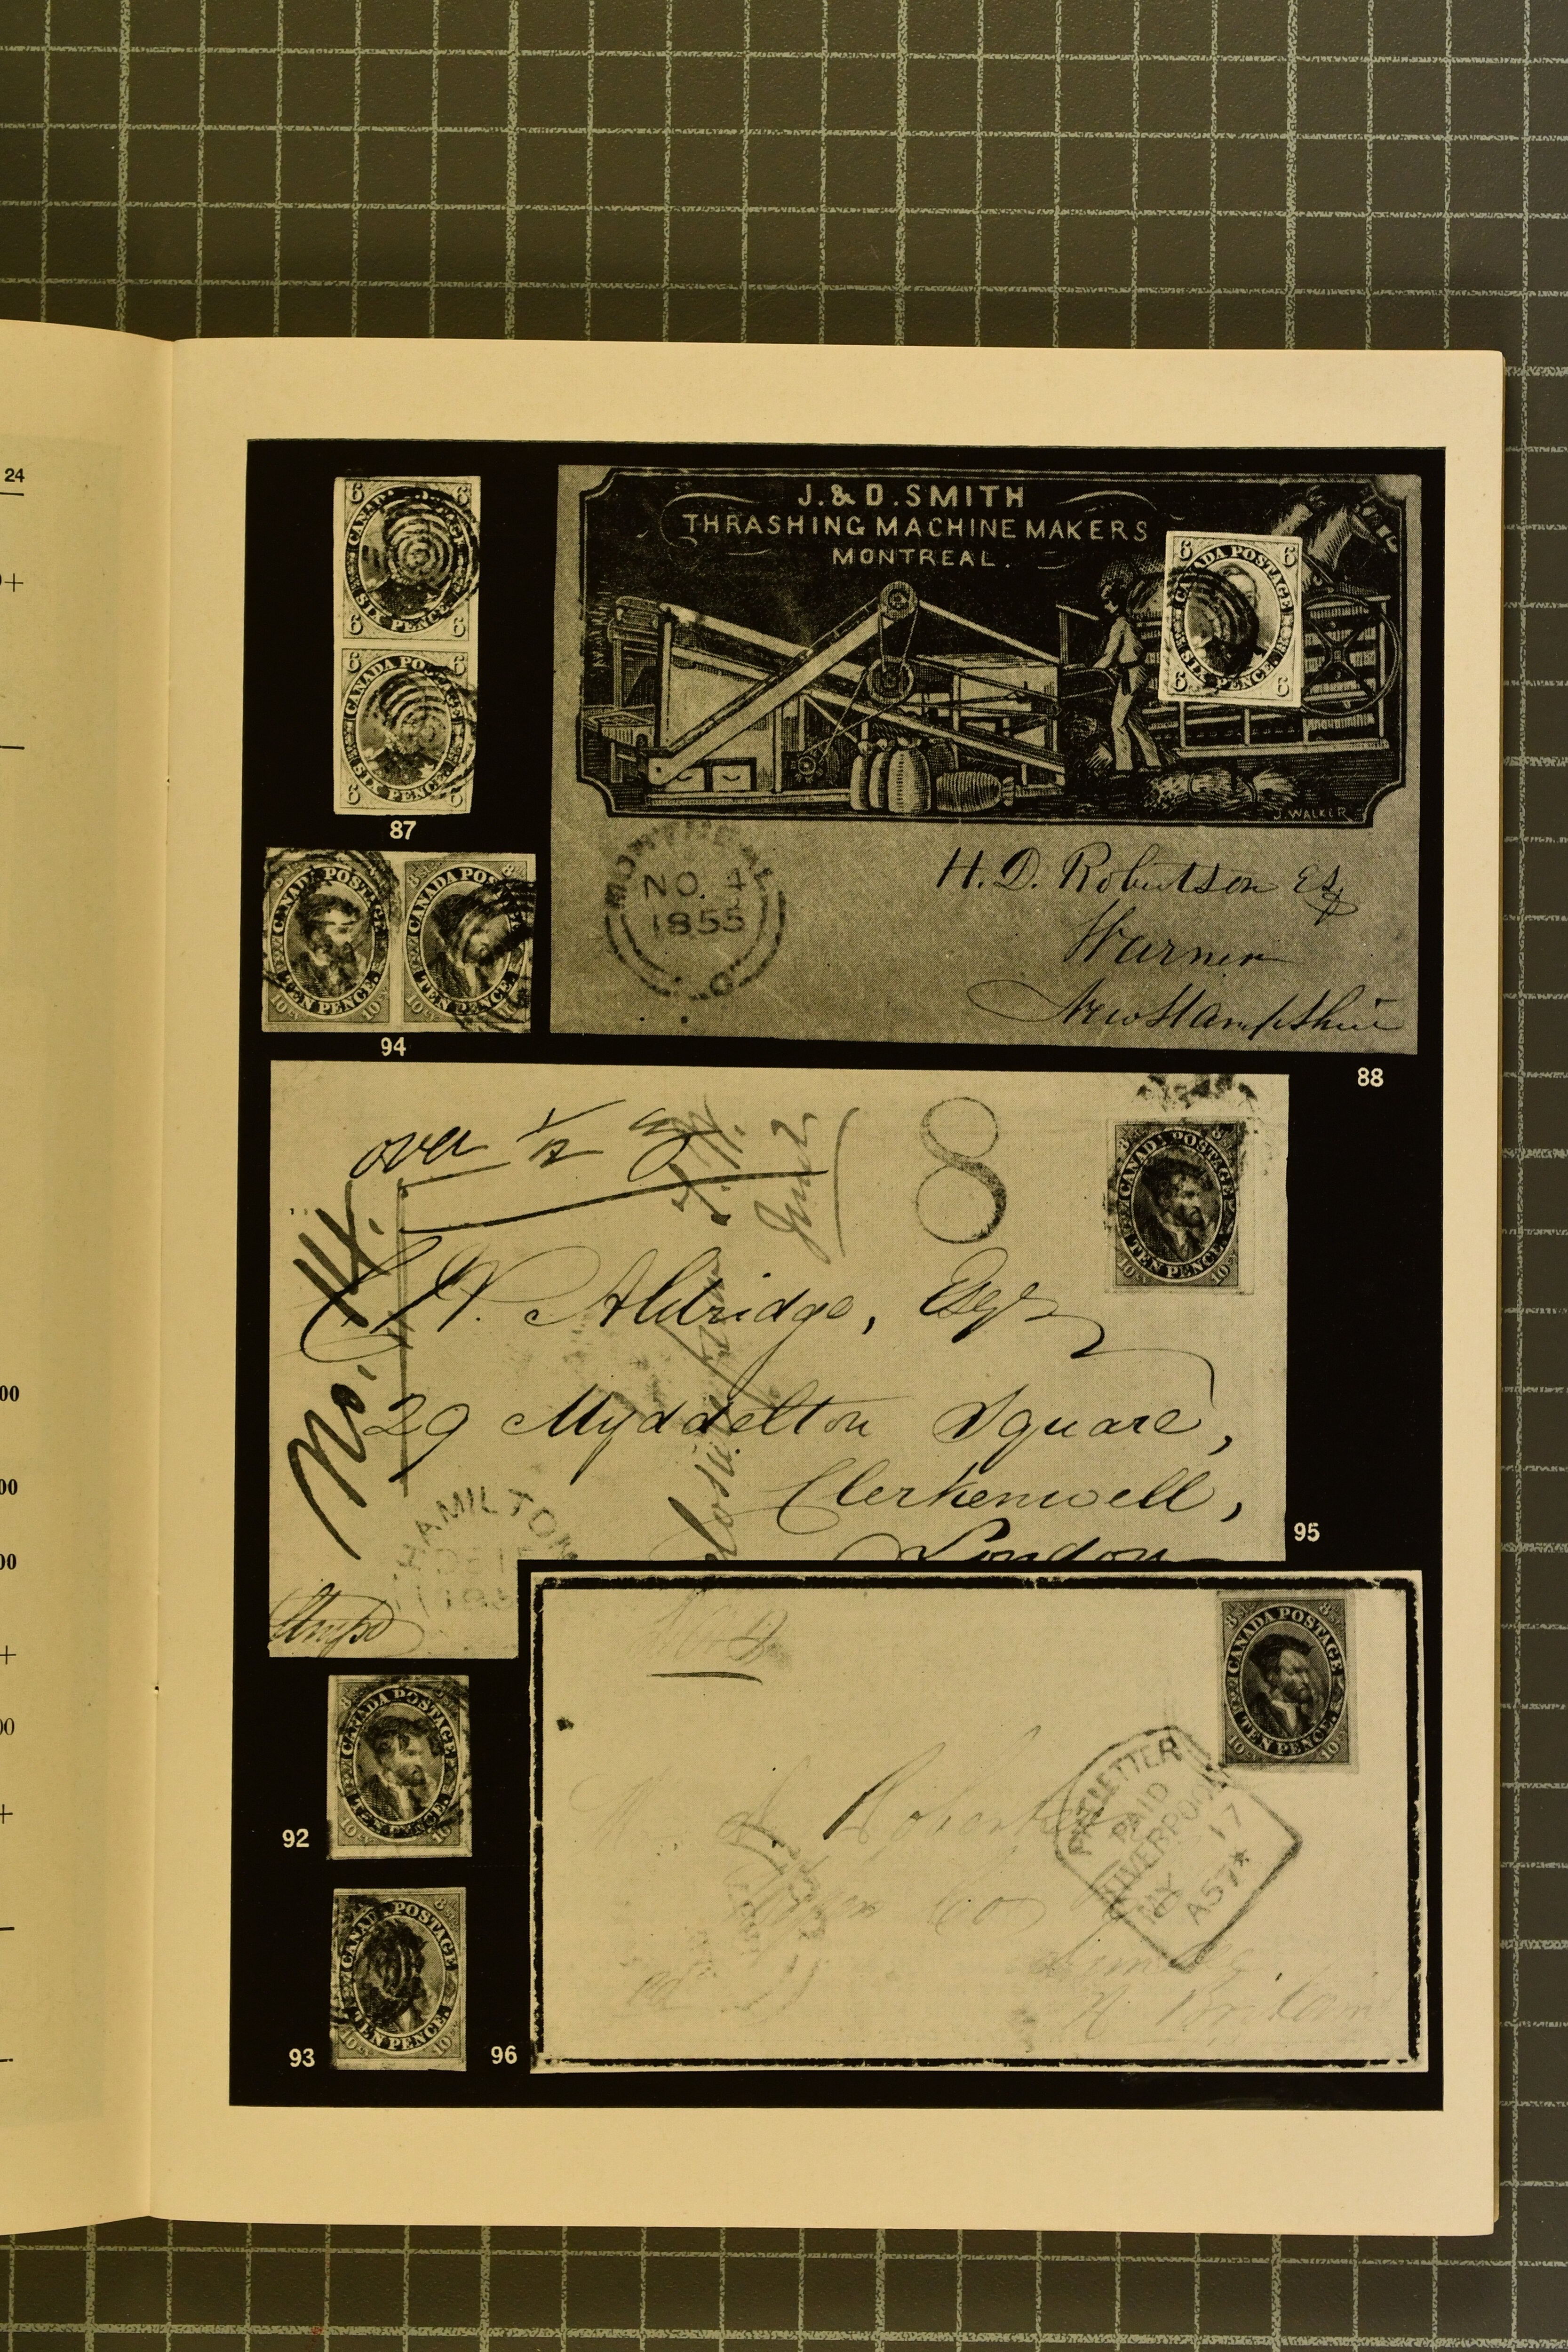 24
+
00
00
00
+
00
+
6 6
CANADA POSTAGE
SIX PENCE
6 6
6 6
CANADA PO
SIX PENCE
6 6
87
J. & D. SMITH
THRASHING MACHINE MAKERS
MONTREAL.
6 6
CANADA POSTAGE
SIX PENCE
6 6
J. WALKER
MONTREAL
NO. 4
1855
H. D. Robertson Esq
Warner
New Hampshire
88
CANADA POSTAGE
TEN PENCE
10 10
CANADA POS
TEN PENCE
10
94
over ½ oz
8
8 8
CANADA POSTAGE
TEN PENCE
10 10
No. 14.
W. Aldridge, Esqr
29 Myddelton Square,
Clerkenwell,
London
HAMILTON
95
8 8
CANADA POSTAGE
TEN PENCE
10 10
LETTER
PAID
LIVERPOOL
MY 17
A57*
N Britain
CANADA POSTAGE
TEN PENCE
10 10
92
8
CANADA POSTAGE
TEN PENCE
10 10
93
96